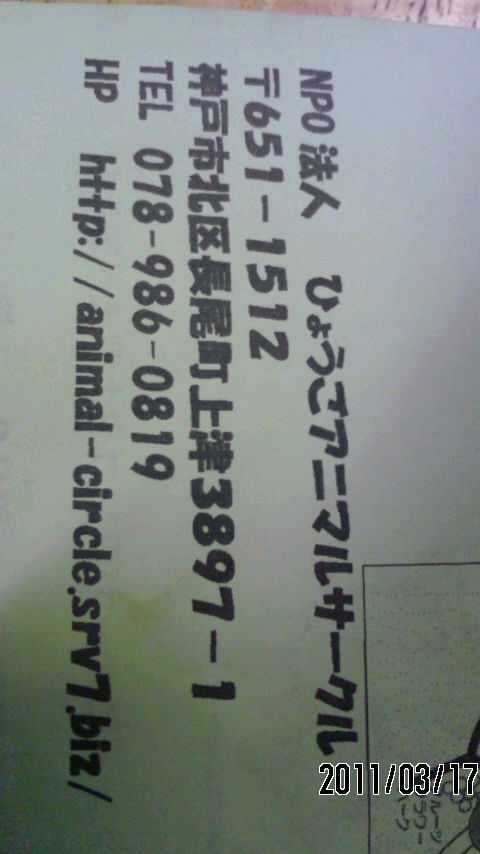 NPO法人 ひょうごアニマルサークル
〒651-1512
神戸市北区長尾町上津3897-1
TEL 078-986-0819
HP http://animal-circle.srv7.biz/
ルーツ
フラワー
パーク
2011/03/17